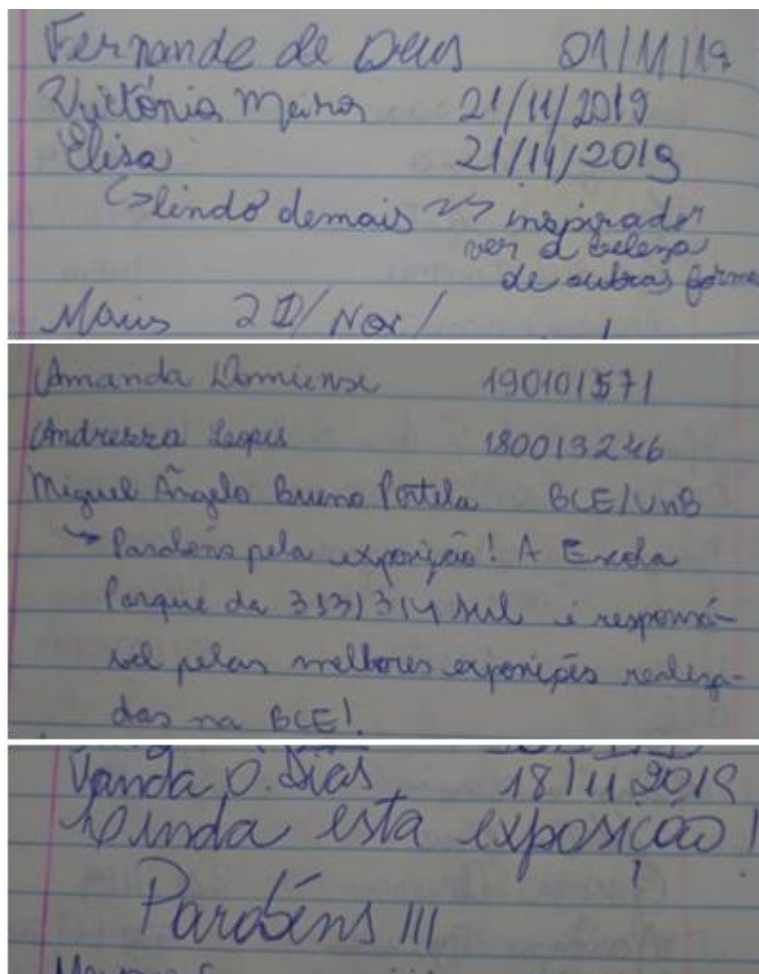 Fernande de Deus 01/11/19
Victónia Meira 21/11/2019
Elisa 21/11/2019
↳ lindo demais ~> inspirador
ver a beleza
de outras formas
Mais 21/Nov/
Amanda Domiense 190101571
Andrezza Lopes 180013246
Miguel Ângelo Bueno Portela BCE/UnB
→ Parabéns pela exposição! A Escola
Parque da 313/314 Sul é responsá-
vel pelas melhores exposições realiza-
das na BCE!
Vanda O. Dias 18/11/2019
Linda esta exposição!
Parabéns!!!